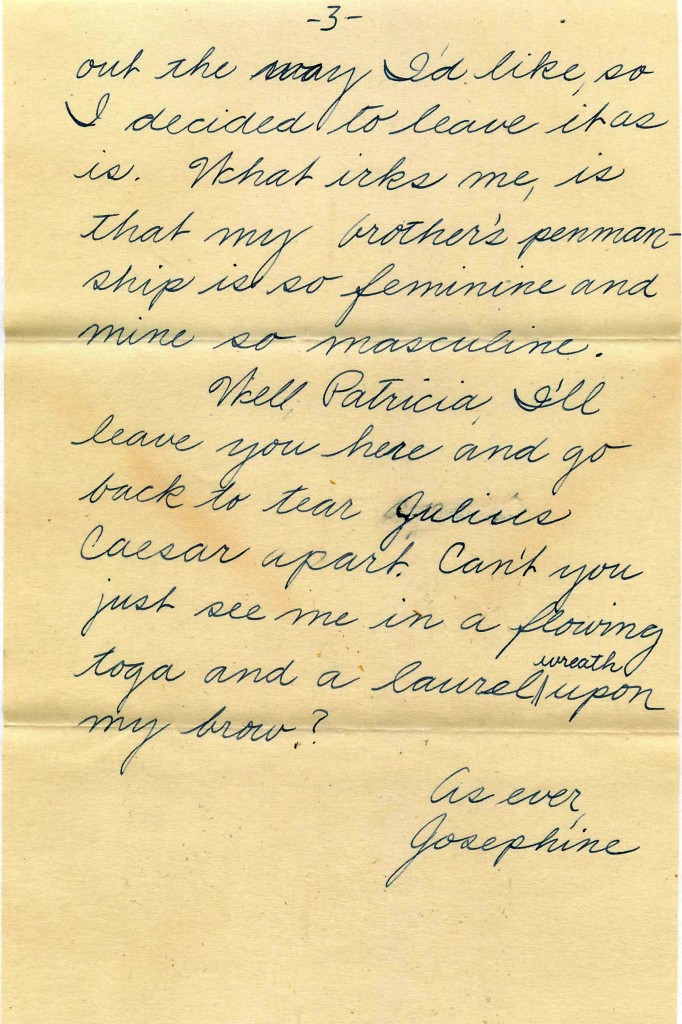 -3-
out the way I'd like, so
I decided to leave it as
is. What irks me, is
that my brother's penman-
ship is so feminine and
mine so masculine.
Well, Patricia, I'll
leave you here and go
back to tear Julius
Caesar apart. Can't you
just see me in a flowing
toga and a laurel wreath upon
my brow?
As ever,
Josephine